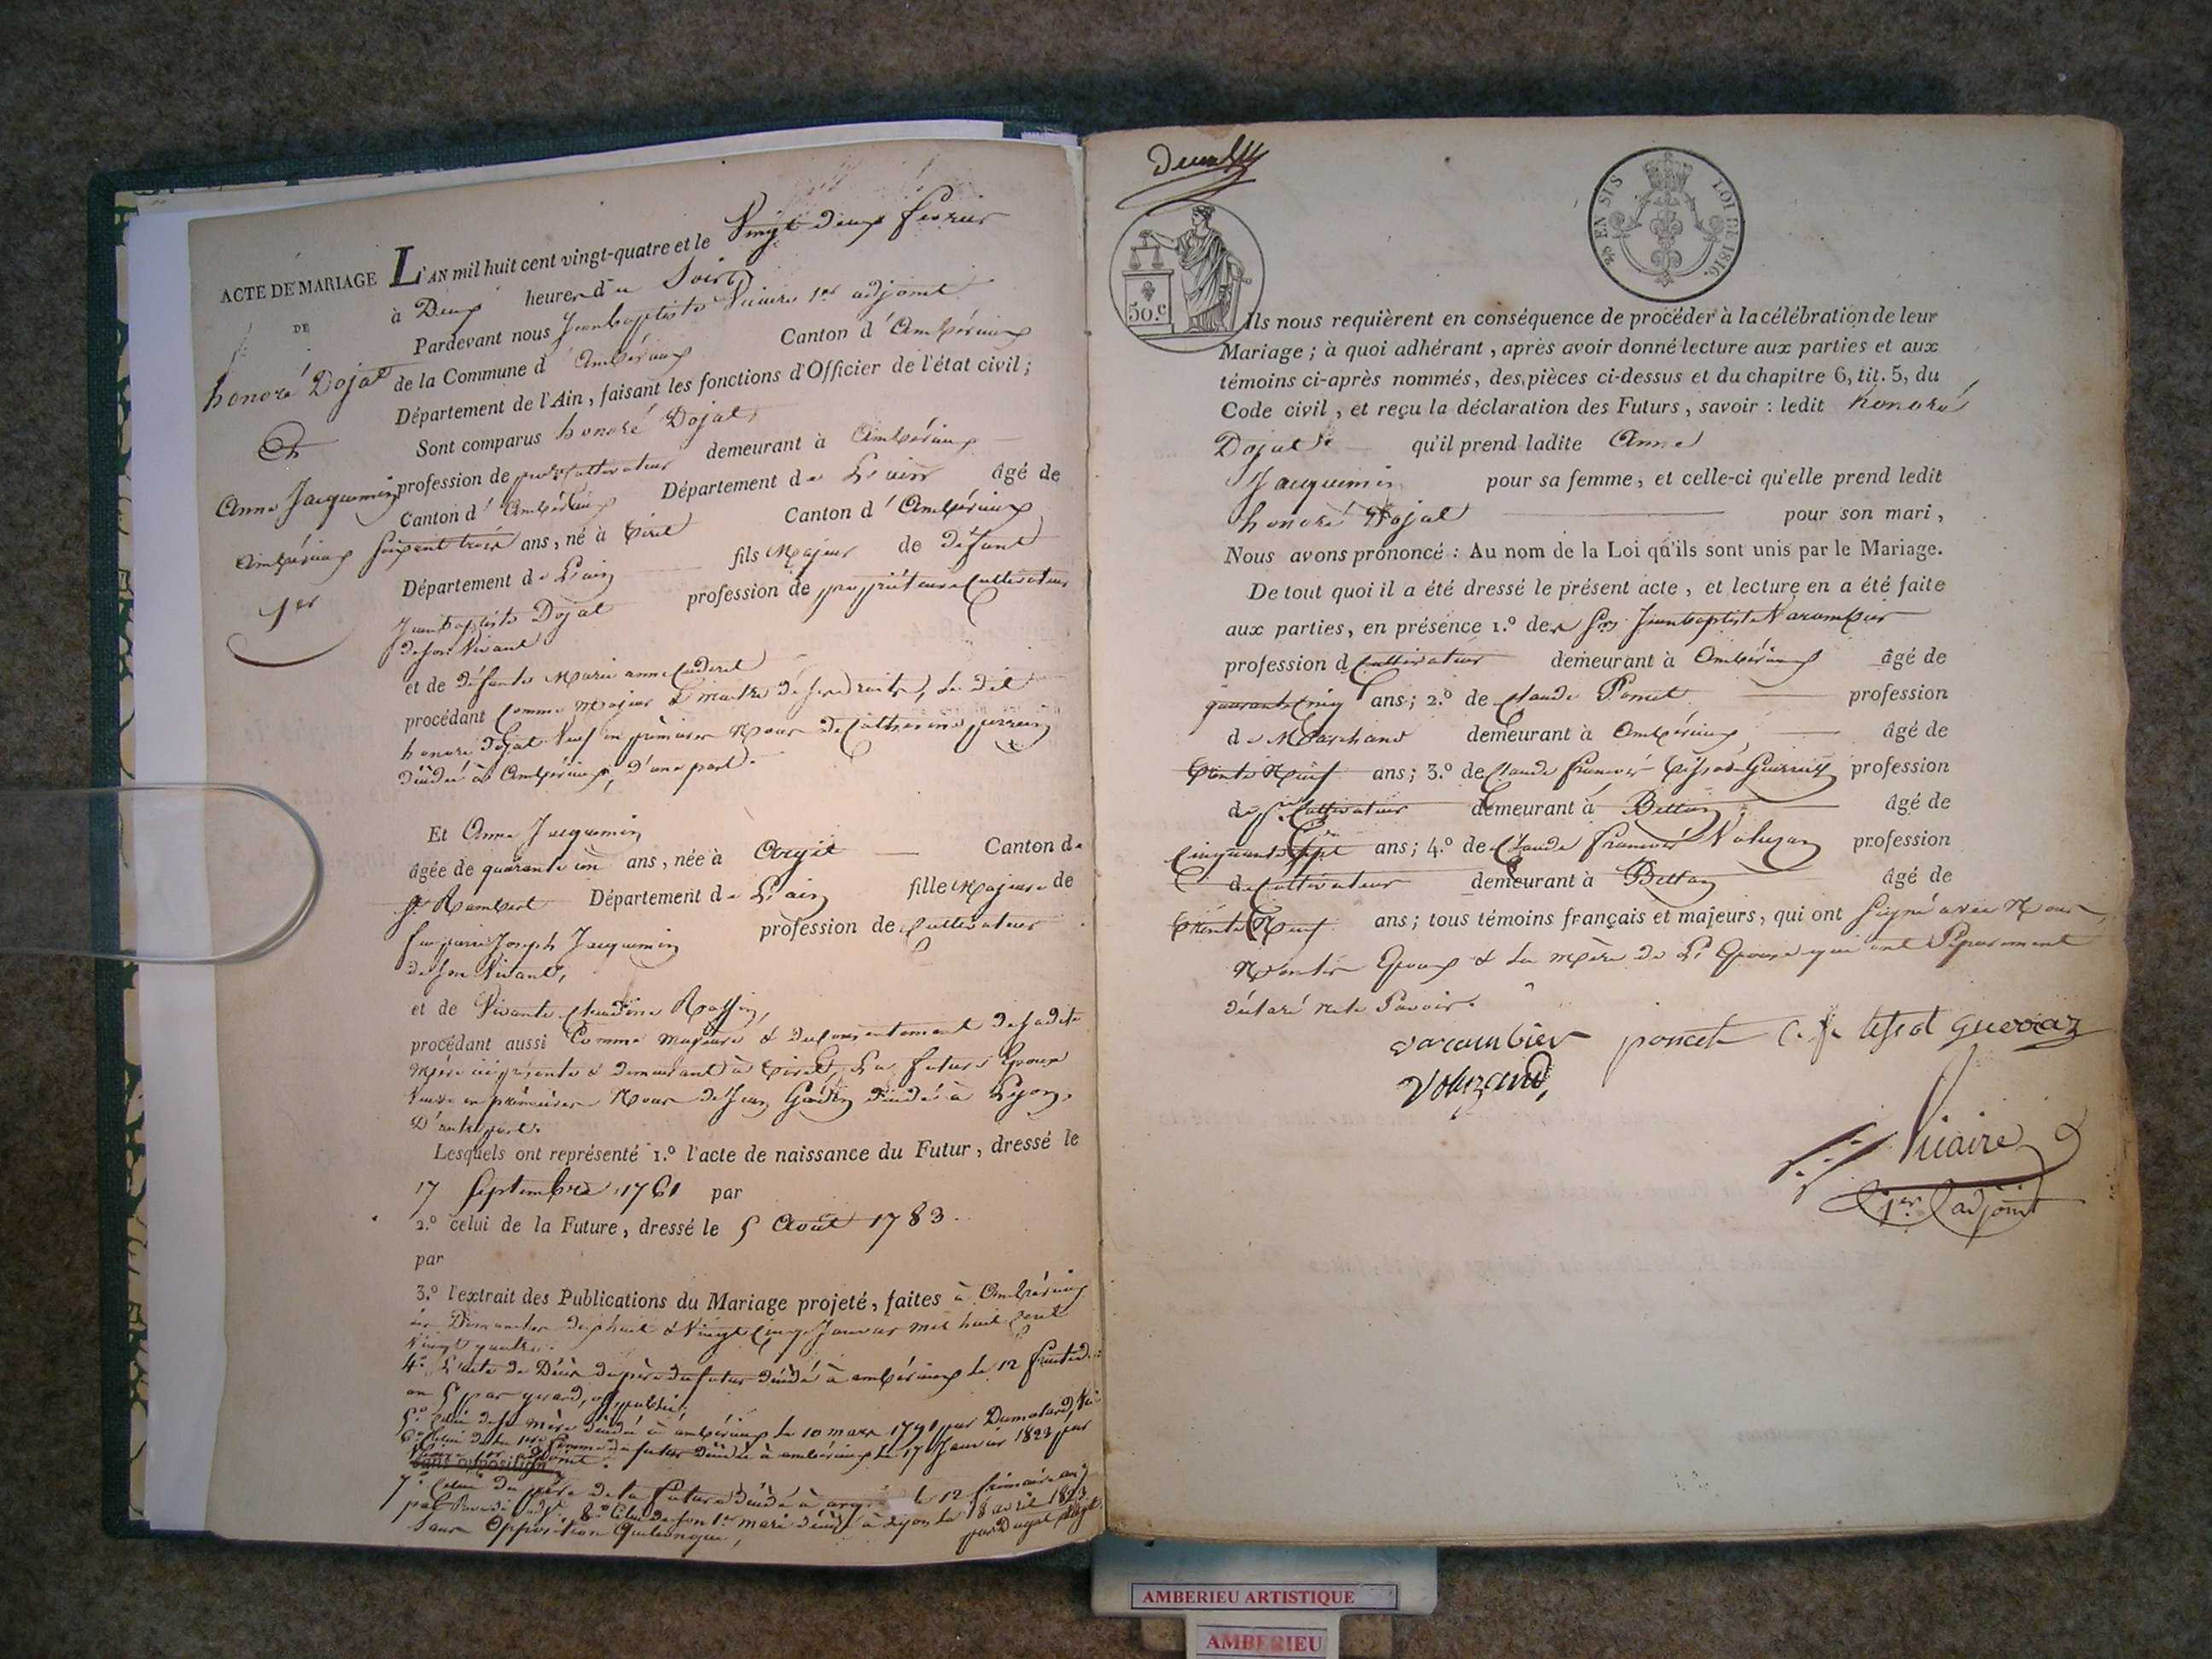 ACTE DE MARIAGE
DE
honoré Dojat
Et
Anne Jacquemin
Ambérieux
1er
L'AN mil huit cent vingt-quatre et le Vingt deux fevrier
à Deux heures du Soir
Pardevant nous Jeanbaptiste Vicaire 1er adjoint
de la Commune d'Ambérieux Canton d'Ambérieux
Département de l'Ain, faisant les fonctions d'Officier de l'état civil;
Sont comparus honoré Dojat
profession de demeurant à Ambérieux
Canton d'Ambérieux Département de L'ain âgé de
Soixante trois ans, né à Tiret Canton d'Ambérieux
Département de L'ain fils Majeur de défunt
Jeanbaptiste Dojat profession de propriétaire Cultivateur
de son Vivant
et de défunte Marie anne
procédant Comme Majeur & maitre de ses droits, Le dit
honoré Dojat Veuf en premières Noces de Catherine
décédée à Ambérieux, d'une part.
Et Anne Jacquemin
âgée de quarante un ans, née à Argit Canton de
St Rambert Département de L'ain fille Majeure de
feu pierre Joseph Jacquemin profession de Cultivateur
de son Vivant,
et de Vivante Claudine
procédant aussi Comme majeure & du Consentement de sadite
Mère ici présente & demeurant à Tiret, La future Epouse
Veuve en premières Noces de Jean décédé à Lyon,
D'autre part.
Lesquels ont représenté 1.º l'acte de naissance du Futur, dressé le
17 Septembre 1761 par
2.º celui de la Future, dressé le 5 Août 1783
par
3.º l'extrait des Publications du Mariage projeté, faites à Ambérieux
les Dimanches dixhuit & Vingt Cinq Janvier mil huit Cent
Vingt quatre.
4.º L'acte de Décès du père du futur décédé à ambérieux le 12 fructid.
an 5 par gerard, off. public;
5.º Celui de sa mère décédée à ambérieux le 10 mars 1791 par Dumolard,
6.º Celui de la 1ere femme du futur décédée à ambérieux le 17 Janvier 1823 par
Vicaire 1er adjoint.
sans opposition
7.º Celui du père de la future décédé à le 12 frimaire an
8.º Celui de son 1er mari décédé à Lyon le 18 avril 1823
Sans Opposition Quelconque,
50.C
EN SUS
LOI DE 1816.
Ils nous requièrent en conséquence de procéder à la célébration de leur
Mariage; à quoi adhérant, après avoir donné lecture aux parties et aux
témoins ci-après nommés, des pièces ci-dessus et du chapitre 6, tit. 5, du
Code civil, et reçu la déclaration des Futurs, savoir: ledit honoré
Dojat qu'il prend ladite Anne
Jacquemin pour sa femme, et celle-ci qu'elle prend ledit
honoré Dojat pour son mari,
Nous avons prononcé: Au nom de la Loi qu'ils sont unis par le Mariage.
De tout quoi il a été dressé le présent acte, et lecture en a été faite
aux parties, en présence 1.º des Srs Jeanbaptiste Varambier
profession de Cultivateur demeurant à Ambérieux âgé de
quarante Cinq ans; 2.º de Claude Poncet profession
de Marchand demeurant à Ambérieux âgé de
trente Neuf ans; 3.º de Claude francois Tissot Guerraz profession
de Cultivateur demeurant à Bettan âgé de
Cinquante Sept ans; 4.º de Claude francois Voluzan profession
de Cultivateur demeurant à Bettan âgé de
trente Neuf ans; tous témoins français et majeurs, qui ont Signé avec Nous
Non les Epoux & la mère de L'Epouse qui ont Séparément
déclaré ne le Savoir.
varambier poncet C. f. tissot guerraz
Voluzand,
Vicaire
1er adjoint
AMBERIEU ARTISTIQUE
AMBERIEU